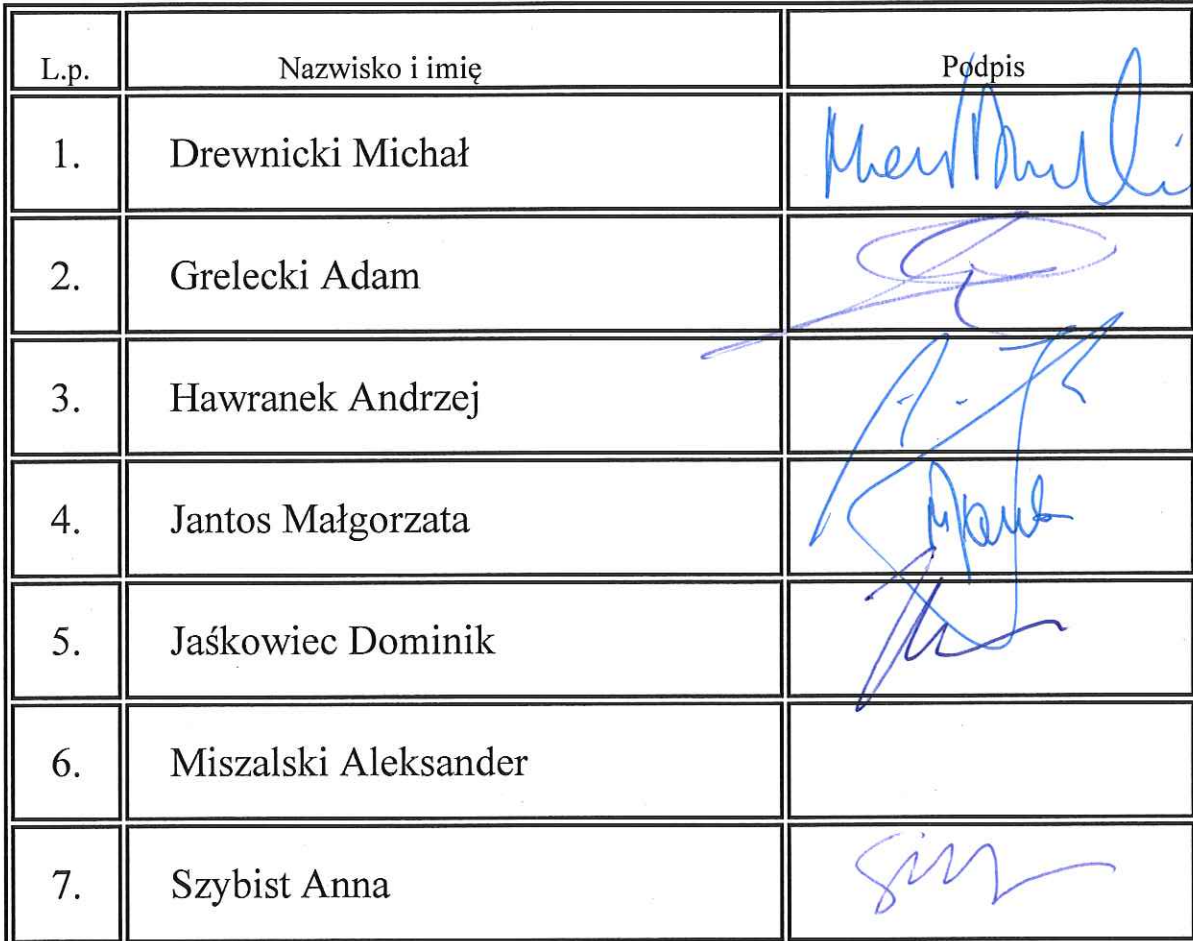 L.p. Nazwisko i imię Podpis
1. Drewnicki Michał
2. Grelecki Adam
3. Hawranek Andrzej
4. Jantos Małgorzata
5. Jaśkowiec Dominik
6. Miszalski Aleksander
7. Szybist Anna